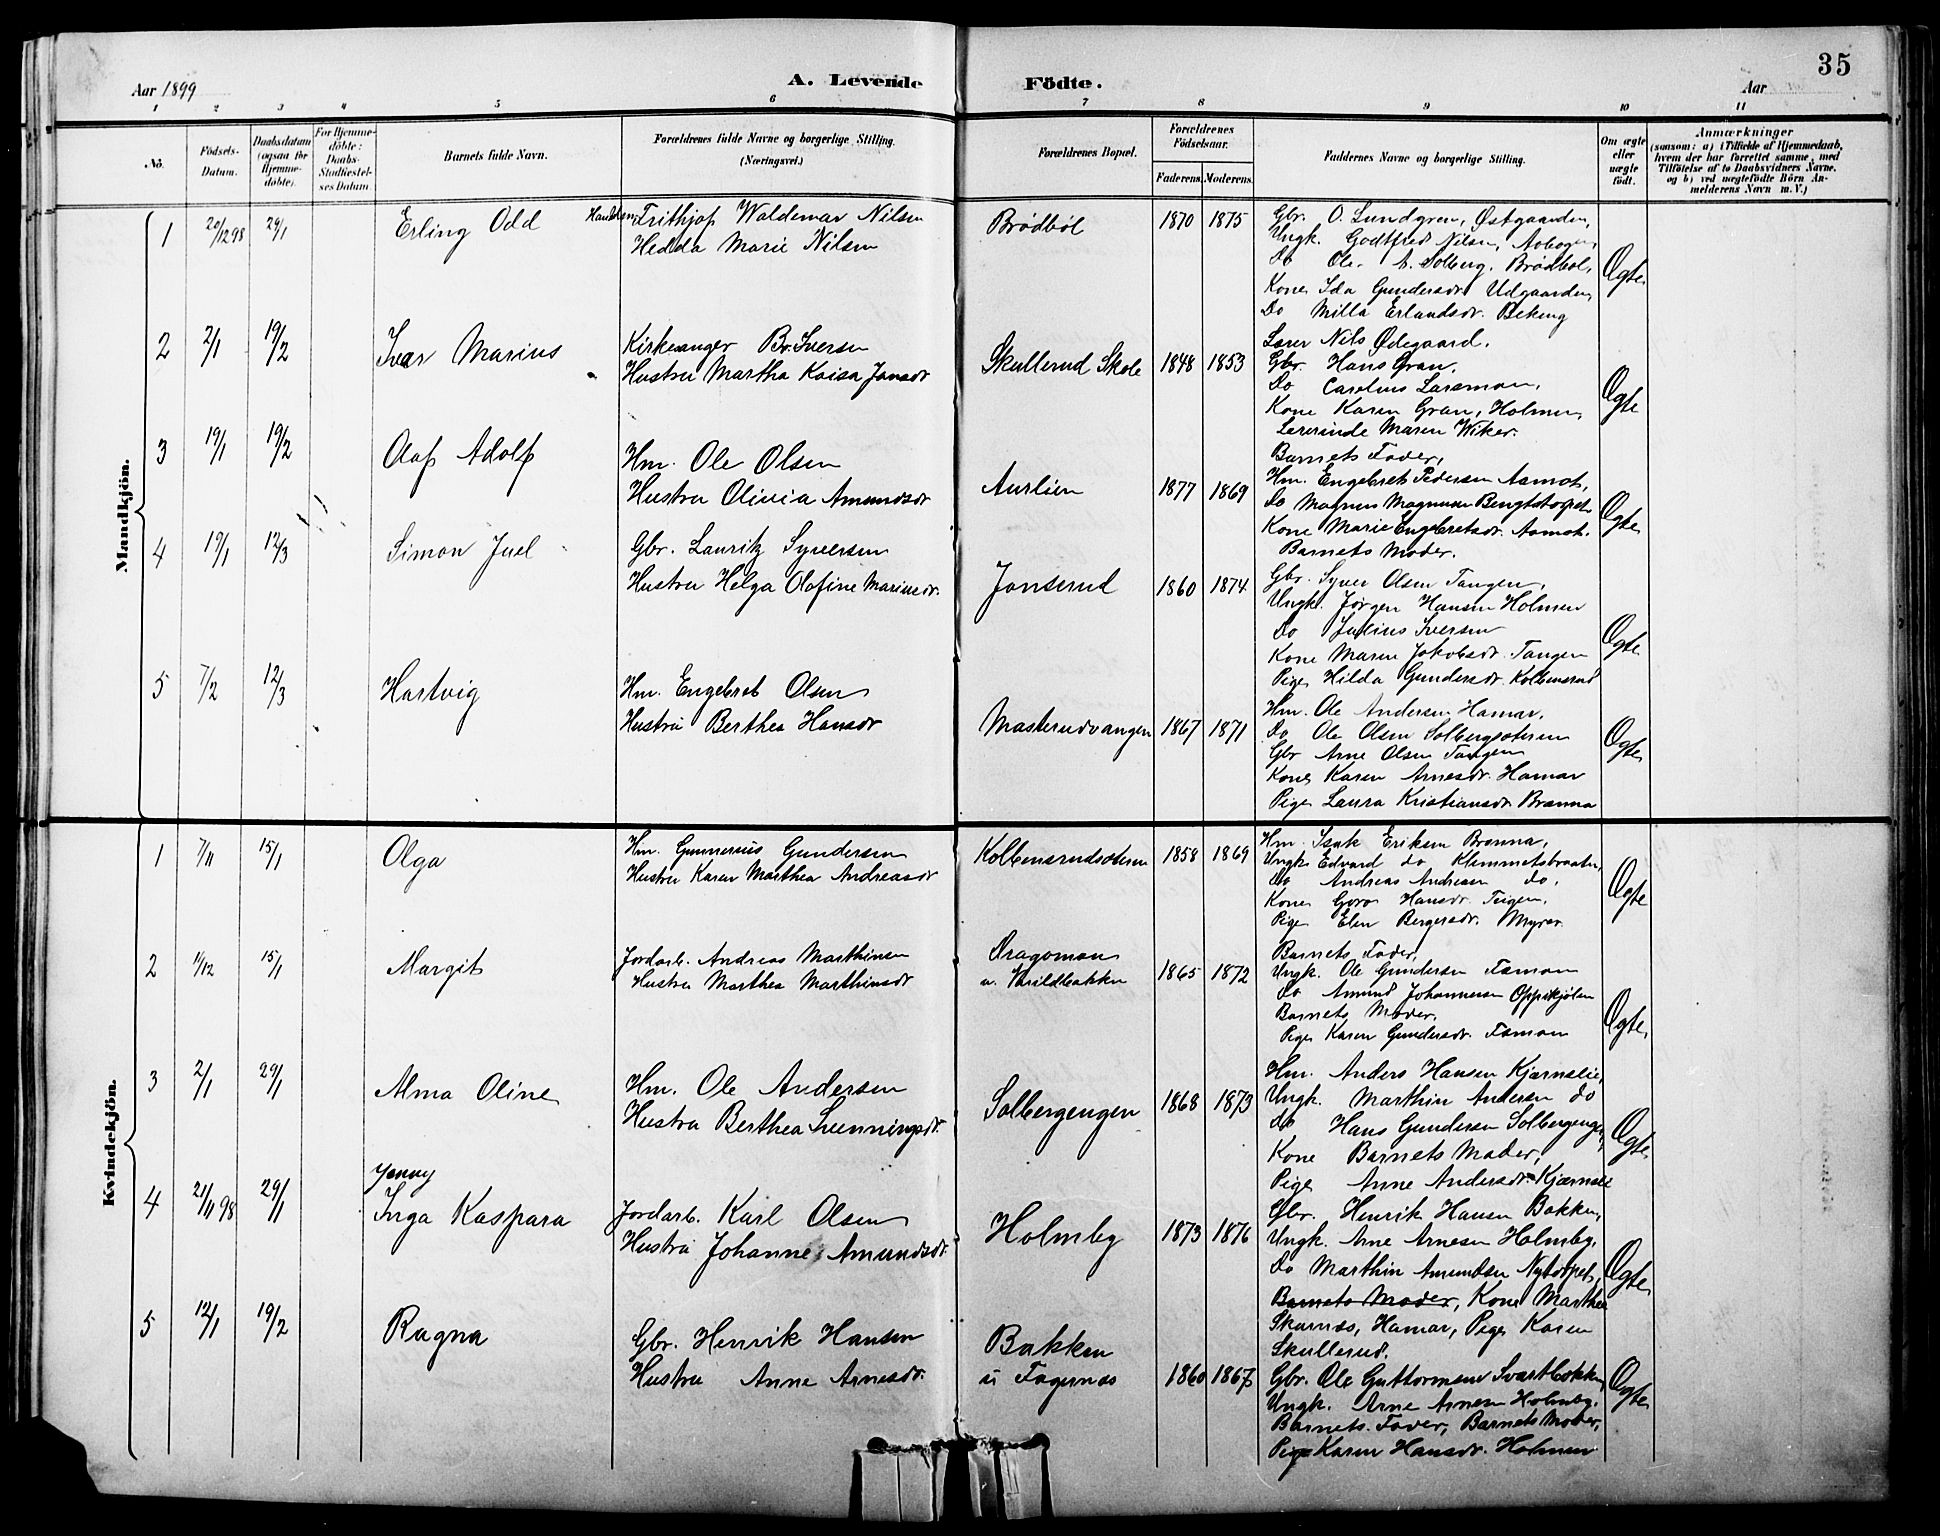 35
Aar 1899
A. Levende
Födte.
Aar
1 2 3 4 5 6 7 8 9 10 11
No.
Födsels-Datum.
Daabsdatum (ogsaa for Hjemmedöbte).
For Hjemmedöbte: Daabs-Stadfæstelses Datum
Barnets fulde Navn.
Forældrenes fulde Navne og borgerlige Stilling. (Næringsvei.)
Forældrenes Bopæl.
Forældrenes Födselsaar.
Faderens. Moderens.
Faddernes Navne og borgerlige Stilling.
Om ægte eller uægte födt.
Anmærkninger
(saasom: a) i Tilfælde af Hjemmedaab, hvem der har forrettet samme, med Tilföielse af to Daabsvidners Navne, og b) ved uægtefödte Börn Anmelderens Navn m. V.)
Mandkjön.
1 20/12 98 29/1 Erling Odd
Handelsm. Frithjof Waldemar Nilsen
Hedda Marie Nilsen
Brödböl 1870 1875
Gbr. O. Lundgren, Østgaarden,
Ungk. Godtfred Nilsen, Aabogen,
Do Ole A. Solberg, Brödböl,
Kone Ida Gundersdr. Udgaarden,
Do Milla Erlandsdr.
Ægte
2 2/1 19/2 Ivar Marius
Kirkesanger Br. Iversen
Hustru Martha Kaisa Jansdr
Skullerud Skole 1848 1853
Lærer Nils Ødegaard.
Gbr. Hans Gran,
Do Carelius Larsmon,
Kone Karen Gran, Holmen,
Lærerinde Maren Wiker.
Ægte
3 19/1 19/2 Olaf Adolf
Hm. Ole Olsen
Hustru Olivia Amundsdr
Aurlien 1877 1869
Barnets Fader,
Hm. Engebret Pedersen Aamot,
Do Magnus Magnusen Bengtstorpet
Kone Marie Engebretsdr. Aamot.
Barnets Moder.
Ægte
4 19/1 12/3 Simon Juel
Gbr. Lauritz Syversen
Hustru Helga Olofine Mariusdr.
Janserud 1860 1874
Gbr. Syver Olsen Tangen,
Ungk. Jörgen Hansen Holmen
Do Julius Iversen
Kone Maren Jakobsdr. Tangen
Pige Hilda Gundersdr. Kolbensrud
Ægte
5 7/2 12/3 Hartvig
Hm. Engebret Olsen
Hustru Berthea Hansdr
Masterudvangen 1867 1871
Hm. Ole Andersen Hamar,
Do Ole Olsen Solbergsæteren
Gbr Arne Olsen Tangen
Kone Karen Arnesdr. Hamar
Pige Laura Kristiansdr. Brænna
Ægte
Kvindekjön.
1 7/11 15/1 Olga
Hm. Gunnerius Gundersen
Hustru Karen Marthea Andreasdr
Kolbensrudsæteren 1858 1869
Hm. Isak Eriksen Brænna,
Ungk. Edvard do Klemmetsbraaten,
Do Andreas Andresen do,
Kone Goro Hansdr. Teigen,
Pige Elen Bergersdr. Myrer.
Ægte
2 11/12 15/1 Margit
Jordarb. Andreas Marthinsen
Hustru Marthea Marthinsdr
Dragomon
u. Varildbakken 1865 1872
Barnets Fader,
Ungk. Ole Gundersen Fæmon
Do Amund Johannesen Oppikjölen
Barnets Moder,
Pige Karen Gundersdr. Fæmon
Ægte
3 2/1 29/1 Alma Oline
Hm. Ole Andersen
Hustru Berthea Svenningsdr.
Solbergengen 1868 1873
Hm. Anders Hansen Kjærnslie,
Ungk. Marthin Andersen do
do Hans Gundersen Solbergengen,
Kone Barnets Moder,
Pige Anne Andersdr. Kjærnslie
Ægte
Jenny
4 21/11 98 29/1 Inga Kaspara
Jordarb. Karl Olsen
Hustru Johanne Amundsdr.
Holmby 1873 1876
Gbr. Henrik Hansen Bakken,
Ungk. Arne Arnesen Holmby,
Do Marthin Amundsen Nytorpet,
Barnets Moder, Kone Marthea
Skarnæs, Hamar, Pige Karen
Skullerud.
Ægte
5 12/1 19/2 Ragna
Gbr. Henrik Hansen
Hustru Anne Arnesdr.
Bakken
u Fagernæs 1860 1867
Gbr. Ole Guttormsen Svartbakken,
Ungk. Arne Arnesen Holmby,
Barnets Fader, Barnets Moder,
Pige Karen Hansdr. Holmen
Ægte